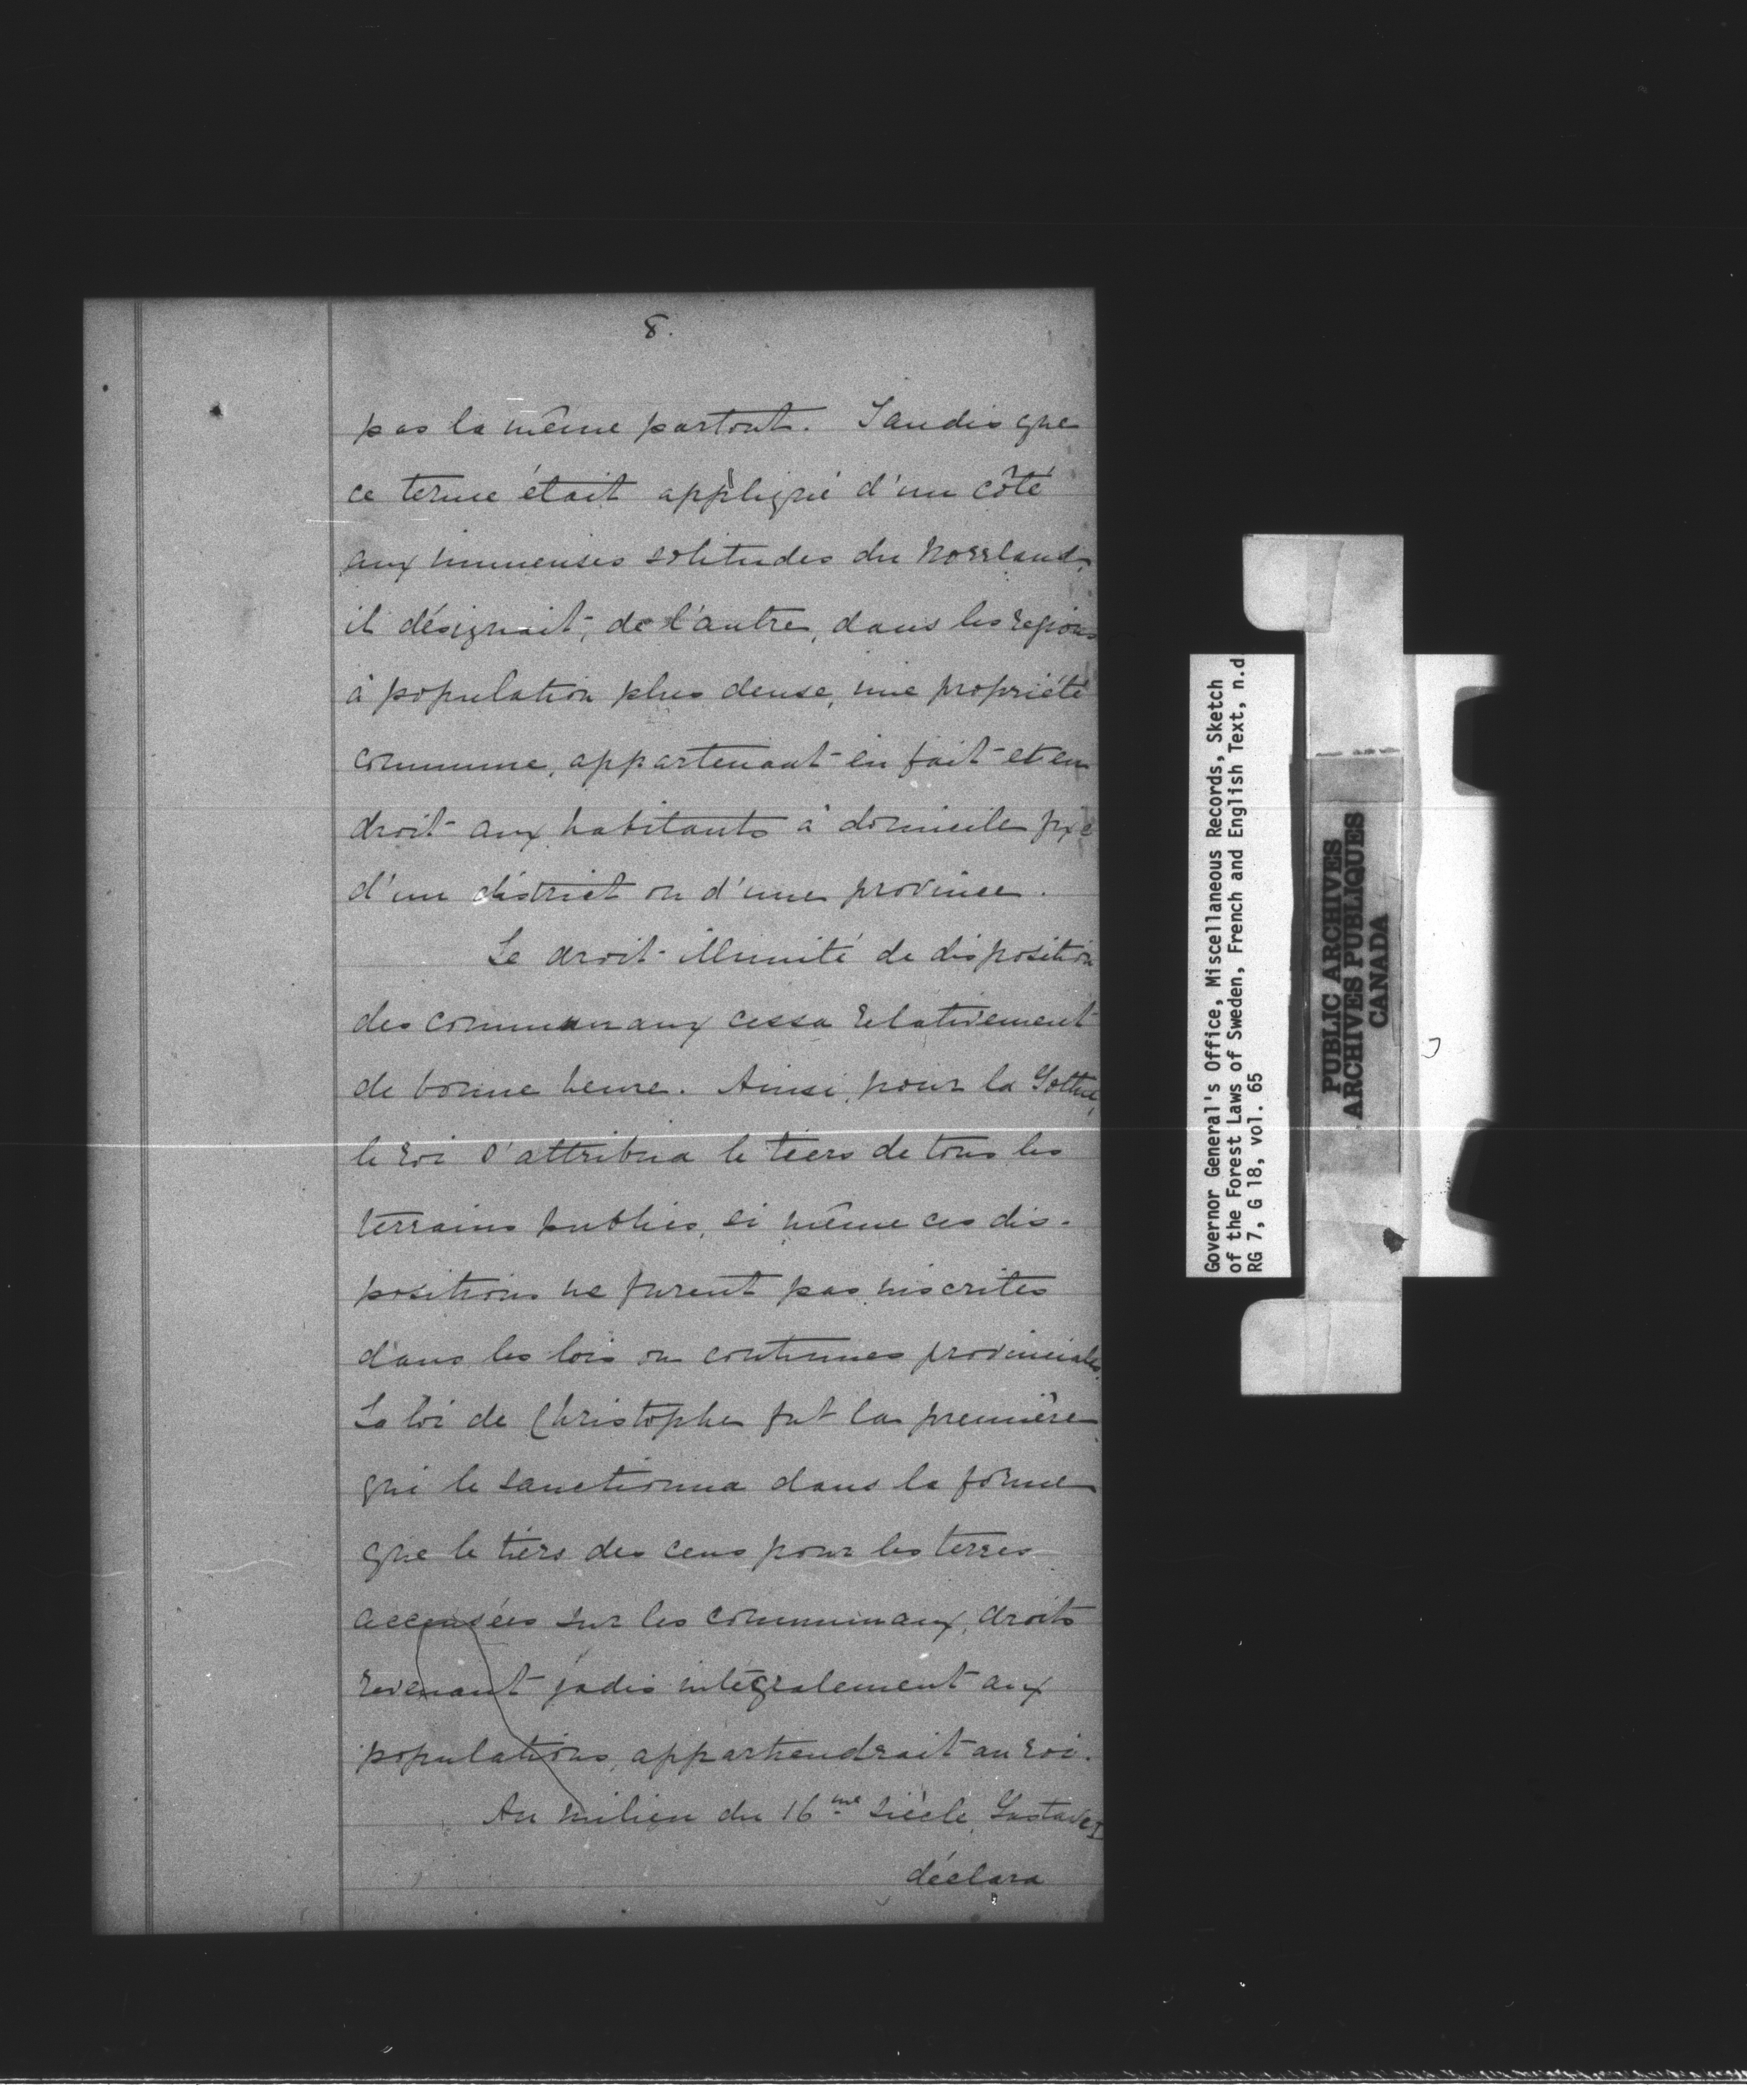 8.
pas la même partout. Tandis que
ce terme était appliqué d'un côté
aux immenses solitudes du Norrland,
il désignait, de l'autre, dans les régions
à population plus dense, une propriété
commune, appartenant en fait et en
droit aux habitants à domicile fixe
d'un district ou d'une province.
Le droit illimité de disposition
des communaux cessa relativement
de bonne heure. Ainsi, pour la Gothie,
le roi s'attribua le tiers de tous les
terrains publics, si même ces dis-
positions ne furent pas inscrites
dans les lois ou coutumes provinciales.
La loi de Christophe fut la première
qui le sanctionna dans la forme
que le tiers des cens pour les terres
accensées sur les communaux, droits
revenant jadis intégralement aux
populations, appartiendrait au roi.
Au milieu du 16me siècle, Gustave I
déclara
Governor General's Office, Miscellaneous Records, Sketch
of the Forest Laws of Sweden, French and English Text, n.d.
RG 7, G 18, vol. 65
PUBLIC ARCHIVES
ARCHIVES PUBLIQUES
CANADA